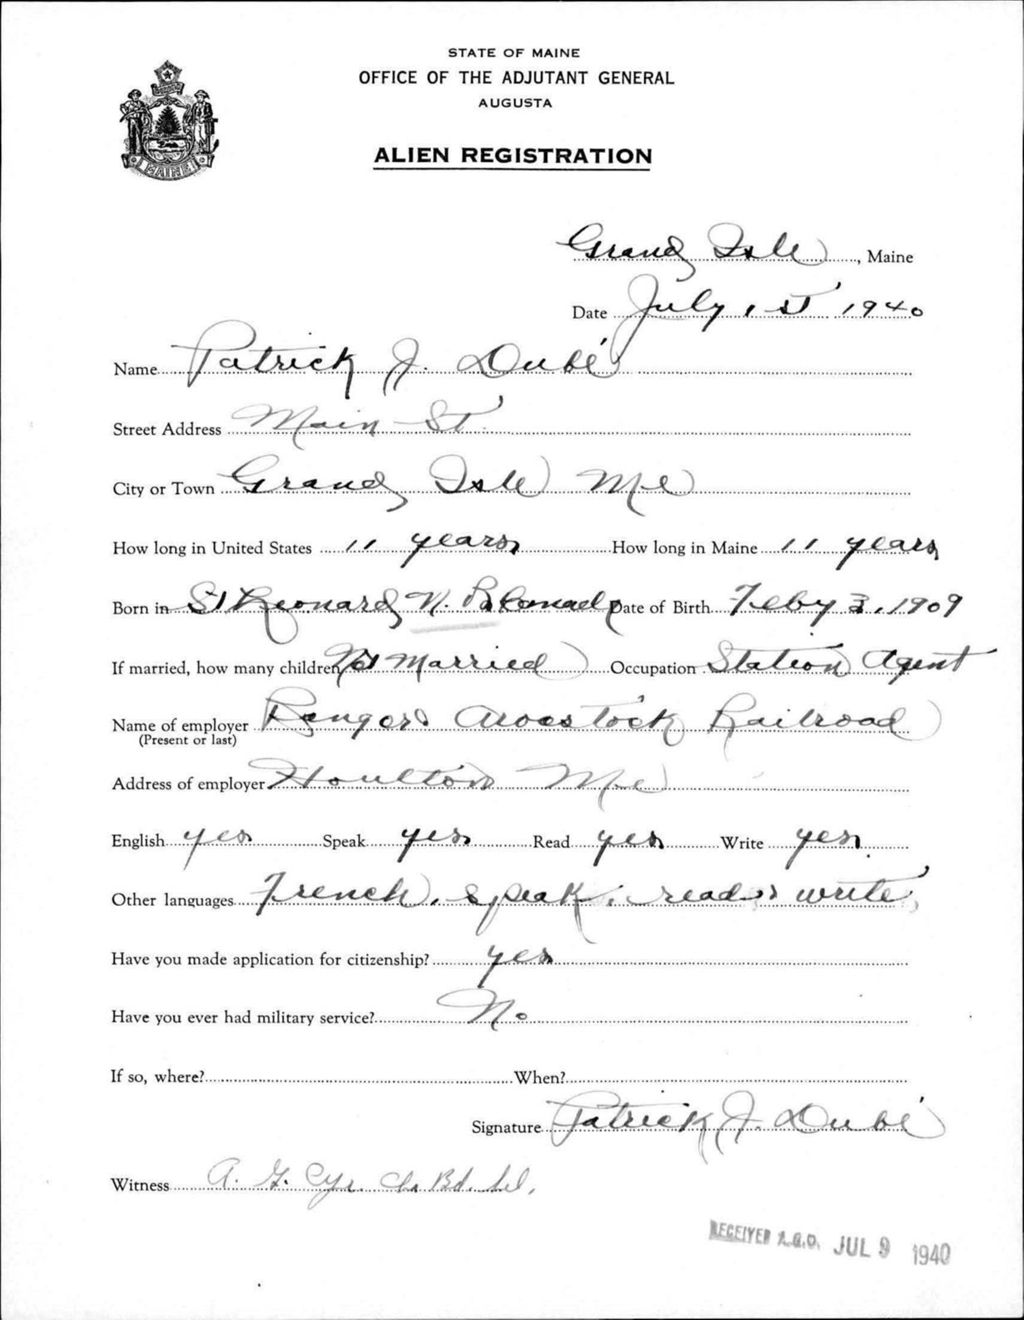 STATE OF MAINE
OFFICE OF THE ADJUTANT GENERAL
AUGUSTA
ALIEN REGISTRATION
MAINE
Grand Isle, Maine
Date July 1st 1940
Name Patrick J. Dubé
Street Address Main St
City or Town Grand Isle Me
How long in United States 11 years How long in Maine 11 years
Born in St Leonard N. B. Canada Date of Birth Feby 3, 1909
If married, how many children Not Married Occupation Station Agent
Name of employer Bangor & Aroostook Railroad
(Present or last)
Address of employer Houlton Me
English yes Speak yes Read yes Write yes
Other languages French, speak, read, write,
Have you made application for citizenship? yes
Have you ever had military service? No
If so, where? When?
Signature Patrick J. Dubé
Witness A. G. Cyr. Ch Bd. Sel.
RECEIVED A.G.O. JUL 9 1940